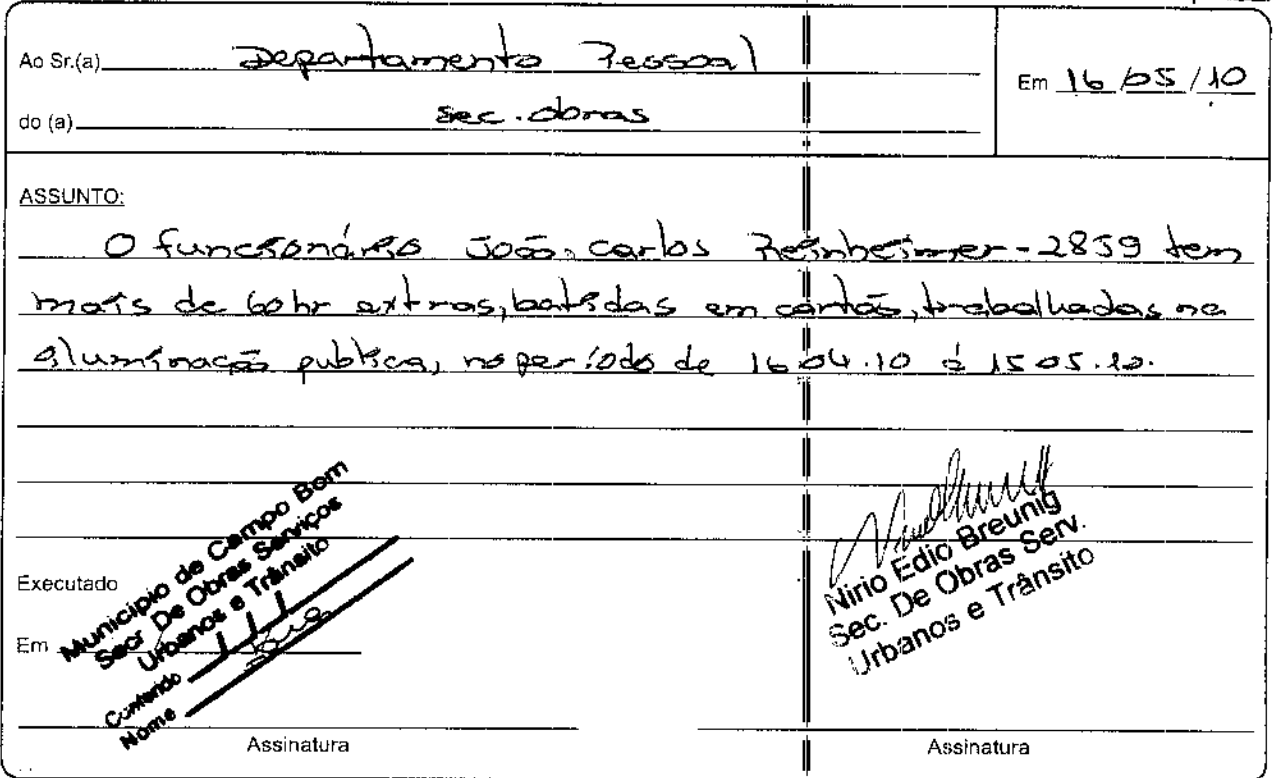 Ao Sr.(a) Departamento Pessoal
Em 16/05/10
do (a) sec. obras
ASSUNTO:
O funcionário João Carlos Reinheimer - 2859 tem
mais de 60 hr extras, batidas em cartão, trabalhadas na
iluminação publica, no período de 16 04.10 á 15 05.10.
Município de Campo Bom
Secr. De Obras Serviços
Urbanos e Trânsito
Conferido
Nome
Executado
Em
Nirio Edio Breunig
Sec. De Obras Serv.
Urbanos e Trânsito
Assinatura
Assinatura